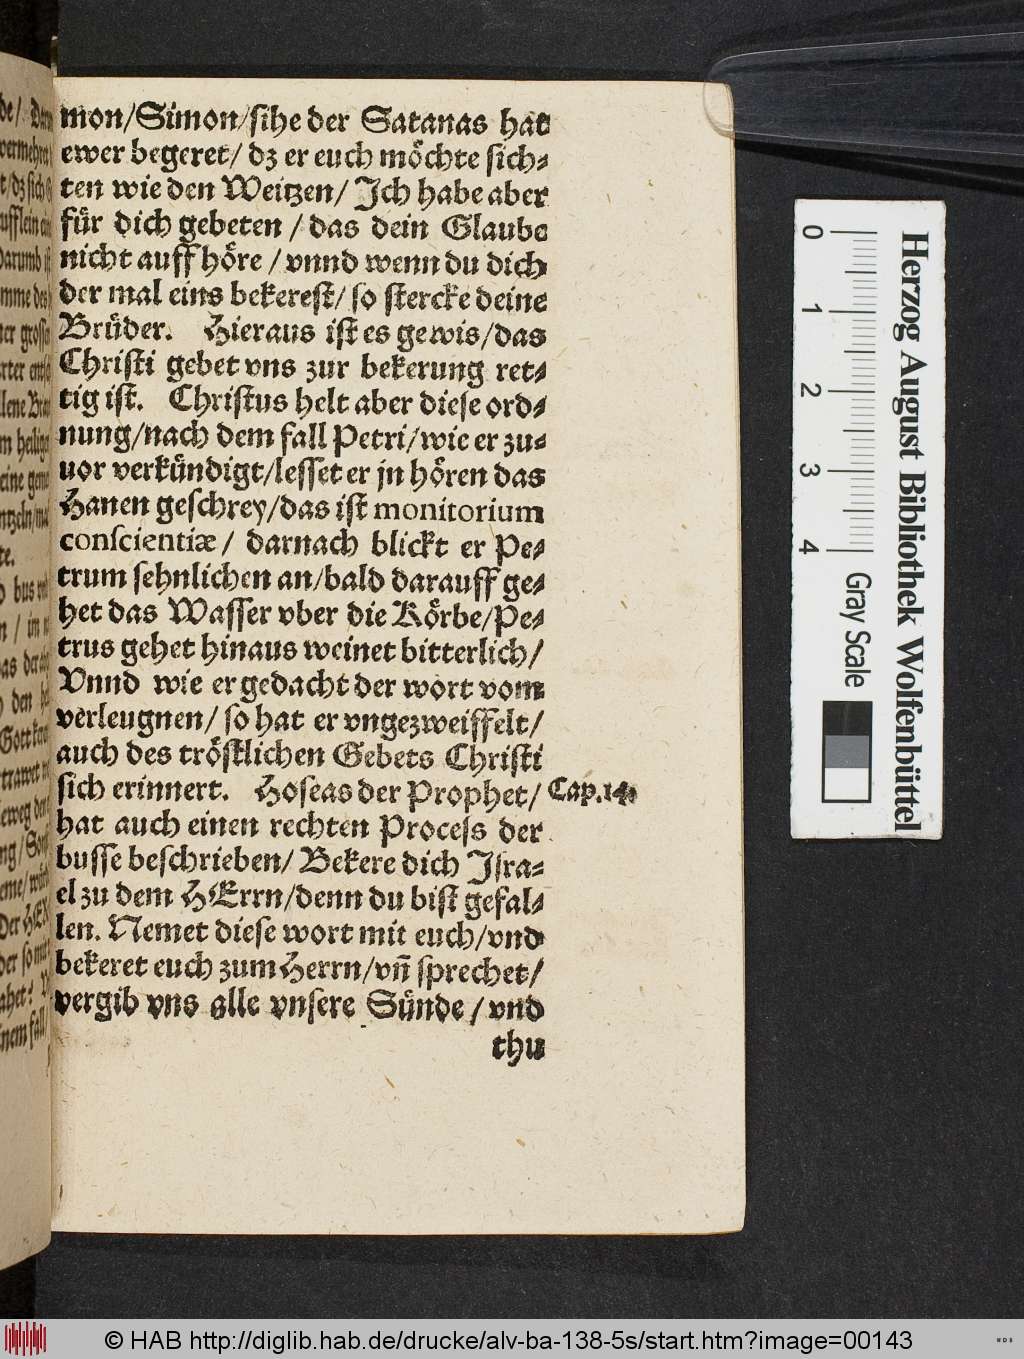 mon/Simon/sihe der Satanas hat
ewer begeret/ dz er euch möchte sich-
ten wie den Weitzen/ Ich habe aber
für dich gebeten / das dein Glaube
nicht auff höre / vnnd wenn du dich
der mal eins bekerest/ so stercke deine
Brüder. Hieraus ist es gewis/das
Christi gebet vns zur bekerung ret-
tig ist. Christus helt aber diese ord-
nung/nach dem fall Petri/wie er zu-
uor verkündigt/lesset er jn hören das
Hanen geschrey/das ist monitorium
conscientiæ/ darnach blickt er Pe-
trum sehnlichen an/bald darauff ge-
het das Wasser vber die Körbe/Pe-
trus gehet hinaus weinet bitterlich/
Vnnd wie er gedacht der wort vom
verleugnen/ so hat er vngezweiffelt/
auch des tröstlichen Gebets Christi
sich erinnert. Hoseas der Prophet/ Cap.14.
hat auch einen rechten Process der
busse beschrieben/ Bekere dich Isra-
el zu dem HErrn/denn du bist gefal-
len. Nemet diese wort mit euch/vnd
bekeret euch zum Herrn/vñ sprechet/
vergib vns alle vnsere Sünde /vnd
thu
0 1 2 3 4
Gray Scale
Herzog August Bibliothek Wolfenbüttel
© HAB http://diglib.hab.de/drucke/alv-ba-138-5s/start.htm?image=00143